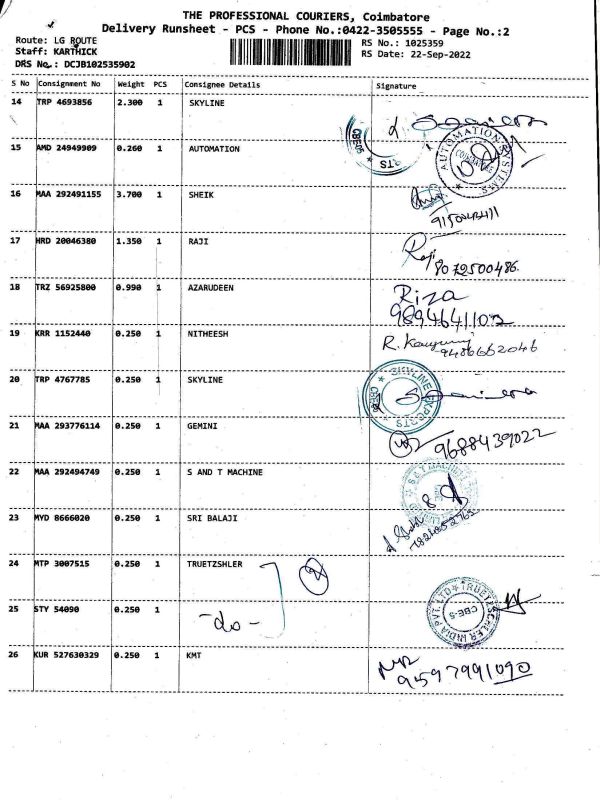 THE PROFESSIONAL COURIERS, Coimbatore
Delivery Runsheet - PCS - Phone No.:0422-3505555 - Page No.:2
Route: LG ROUTE
RS No.: 1025359
Staff: KARTHICK
RS Date: 22-Sep-2022
DRS No.: DCJB102535902
S No Consignment No Weight PCS Consignee Details Signature
14 TRP 4693856 2.300 1 SKYLINE
15 AMD 24949909 0.260 1 AUTOMATION
CBE-5
RTS
AUTOMATION SYSTEMS
16 MAA 292491155 3.700 1 SHEIK
17 HRD 20046380 1.350 1 RAJI
Raji
8072500486.
18 TRZ 56925800 0.990 1 AZARUDEEN
Riza
9894641102
19 KRR 1152440 0.250 1 NITHEESH
9486662046
20 TRP 4767785 0.250 1 SKYLINE
SKYLINE EXPORTS
CBE-5
21 MAA 293776114 0.250 1 GEMINI
9688439022
22 MAA 292494749 0.250 1 S AND T MACHINE
S & T MACHINE
23 MYD 8666020 0.250 1 SRI BALAJI
24 MTP 3007515 0.250 1 TRUETZSHLER
25 STY 54090 0.250 1 -do-
TRUETZSCHLER INDIA PVT. LTD
CBE-5
26 KUR 527630329 0.250 1 KMT
9597991090